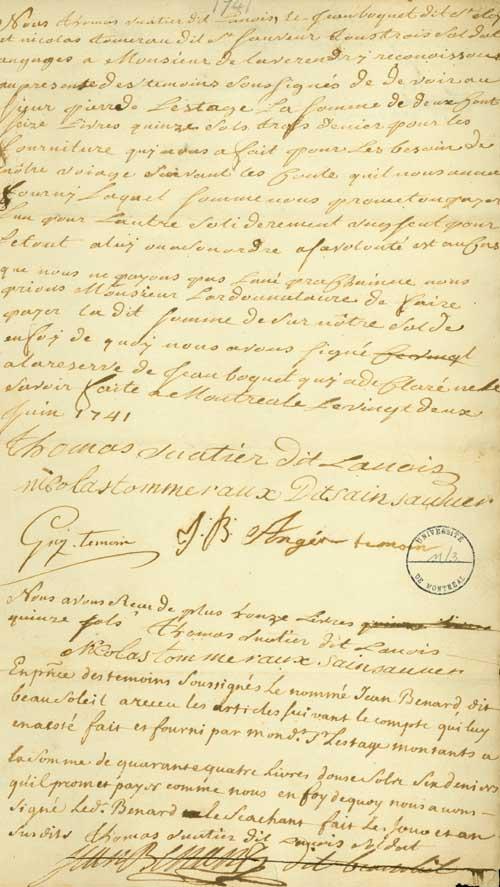 1741
Nous thomas vuatier dit Lanois, Jean boquet dit St
et nicolas tomerau dit St sauveur tous trois soldat
angages a Monsieur de laverendry reconoissons
au presente des temoins soussignés de devoir au
sieur pierre de Lestage La somme de deux Cent
seize Livres quinze sols trois denier pour les
fourniture quy nous a fait pour Les besoin de
nôtre voiage suivant les Conte quil nous a
fourny Laquel somme nous prometon payer
Lun pour Lautre soliderement un seul pour
Letout a luy ou a son ordre a sa volonté est au Cas
que nous ne payons pas Lané prochainne nous
prions Monsieur Lordonnataire de faire
payer la dit somme de sur nôtre solde
en foy de quoy nous avons signé
a la reserve de Jean boquet quy a de Claré ne le
savoir faite a Montreale Le vingt deux
Juin 1741
thomas vuatier dit Lanois
nicolas tommeraux Dit sain sauveur
Guy. temoin
J. B. Angér temoin
UNIVERSITÉ
DE MONTREAL
Nous avons Receu de plus honze Livres
quinze sols thomas vuatier dit Lanois
Nicolas tommeraux sain sauveur
En pnce des temoins soussignés Le nommé Jean Benard dit
beausoleil a receu les articles suivant le compte qui luy
en a esté fait et fourni par mond. Sr Lestage montants a
la somme de quarante quatre Livres douse Sols Six deniers
quil promet payer comme nous en foy de quoy nous avons
signé Led. Benard le Scachant fait Le Jour et an
susdits thomas vuatier dit Lanois
Jean Benard dit